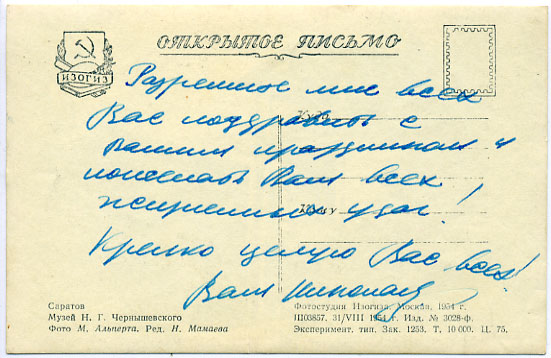 ОТКРЫТОЕ ПИСЬМО
ИЗОГИЗ
Разрешите мне всех
Куда
Вас поздравить с
Вашим праздником и
пожелать Вам всех
Кому
Крепко целую Вас всех!
Ваш Николай
Саратов
Музей Н. Г. Чернышевского
Фото М. Альперта. Ред. Н. Мамаева
Фотостудия Изогиза. Москва, 1954 г.
Ш03857. 31/VIII 1954 г. Изд. № 3028-ф.
Эксперимент. тип. Зак. 1253. Т. 10 000. Ц. 75.